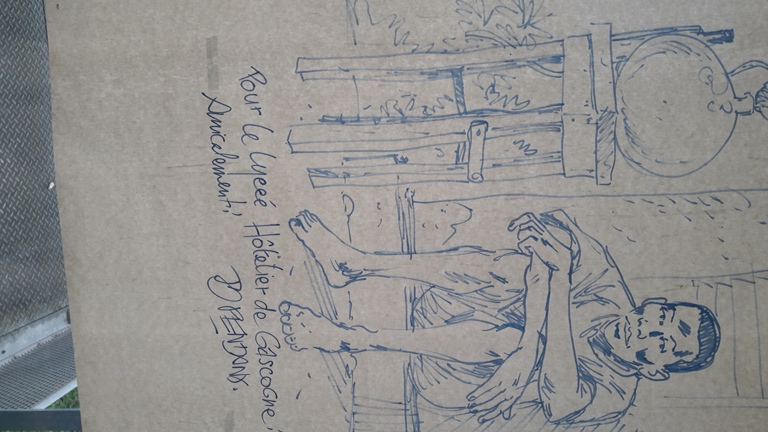 Pour le Lyceé Hôtelier de Gascogne!
Amicalement!